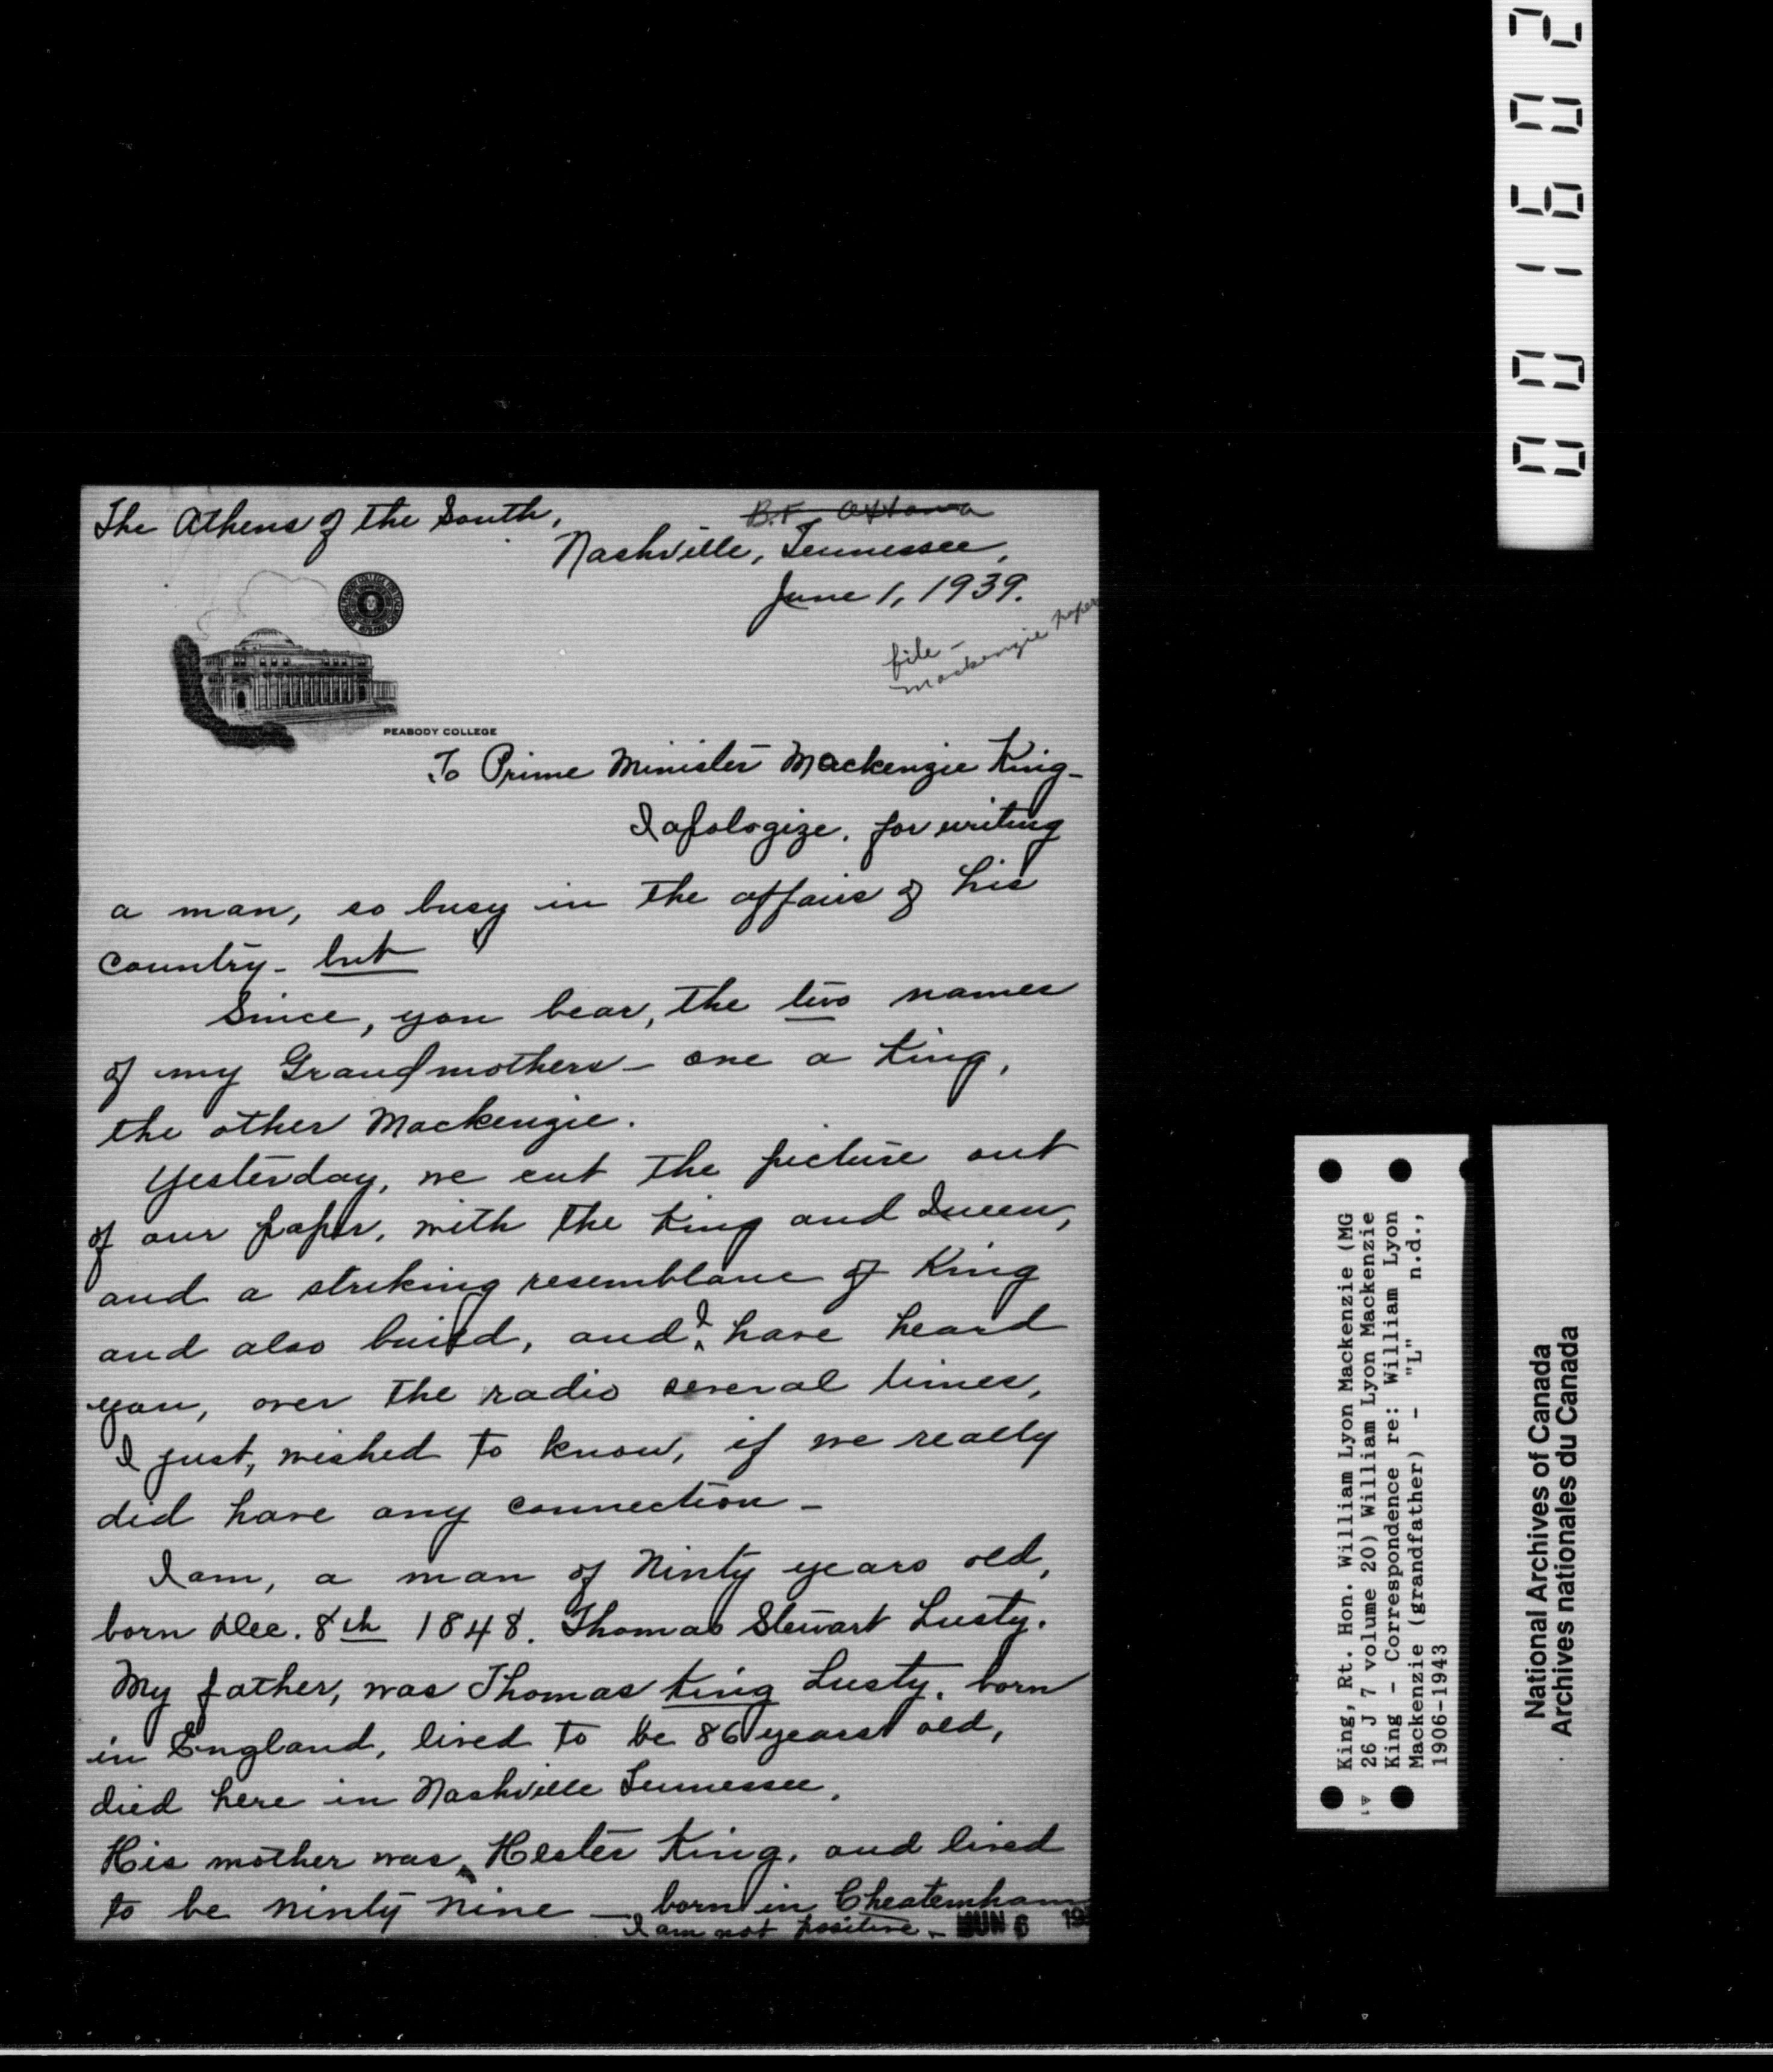 The Athens of the South,
B.F. Ottawa
Nashville, Tennessee,
June 1, 1939.
file -
Mackenzie paper
PEABODY COLLEGE
To Prime Minister Mackenzie King-
I apologize, for writing
a man, so busy in the affairs of his
country - but
Since, you bear, the two names
of my Grandmothers - one a King,
the other Mackenzie.
Yesterday, we cut the picture out
of our paper, with the King and Queen,
and a striking resemblance of King
and also build, and I have heard
you, over the radio several times,
I just, wished to know, if we really
did have any connection -
I am, a man of Ninty years old,
born Dec. 8th 1848. Thomas Stewart Lusty.
My father, was Thomas King Lusty, born
in England, lived to be 86 years old,
died here in Nashville Tennessee.
His mother was, Hester King, and lived
to be ninty nine - born in Cheatemham
I am not positive -
JUN 6 193
001602
King, Rt. Hon. William Lyon Mackenzie (MG
26 J 7 volume 20) William Lyon Mackenzie
King - Correspondence re: William Lyon
Mackenzie (grandfather) - "L" n.d.,
1906-1943
National Archives of Canada
Archives nationales du Canada